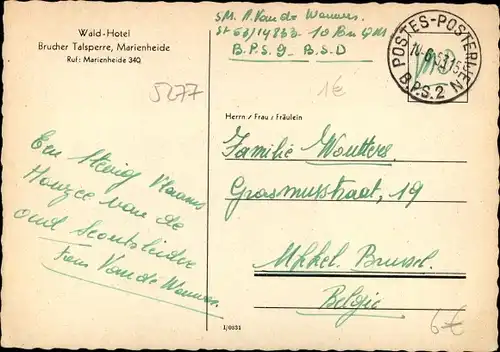 Wald-Hotel
Brucher Talsperre, Marienheide
Ruf: Marienheide 340
5277
Een stevig Vlaams
Houzee van de
oud Scoutsleider
Fons Van de Wouwer.
SM. A. Van de Wouwer.
St 53/14833 10 Bn
B.P.S. 9 - B.S.D
1€
POSTES-POSTERIJEN
10-6-53 15
B.P.S. 2
Herrn / Frau / Fräulein
Familie Woutters.
Grasmusstraat, 19
Ukkel. Brussel.
Belgie
1/0051
6€